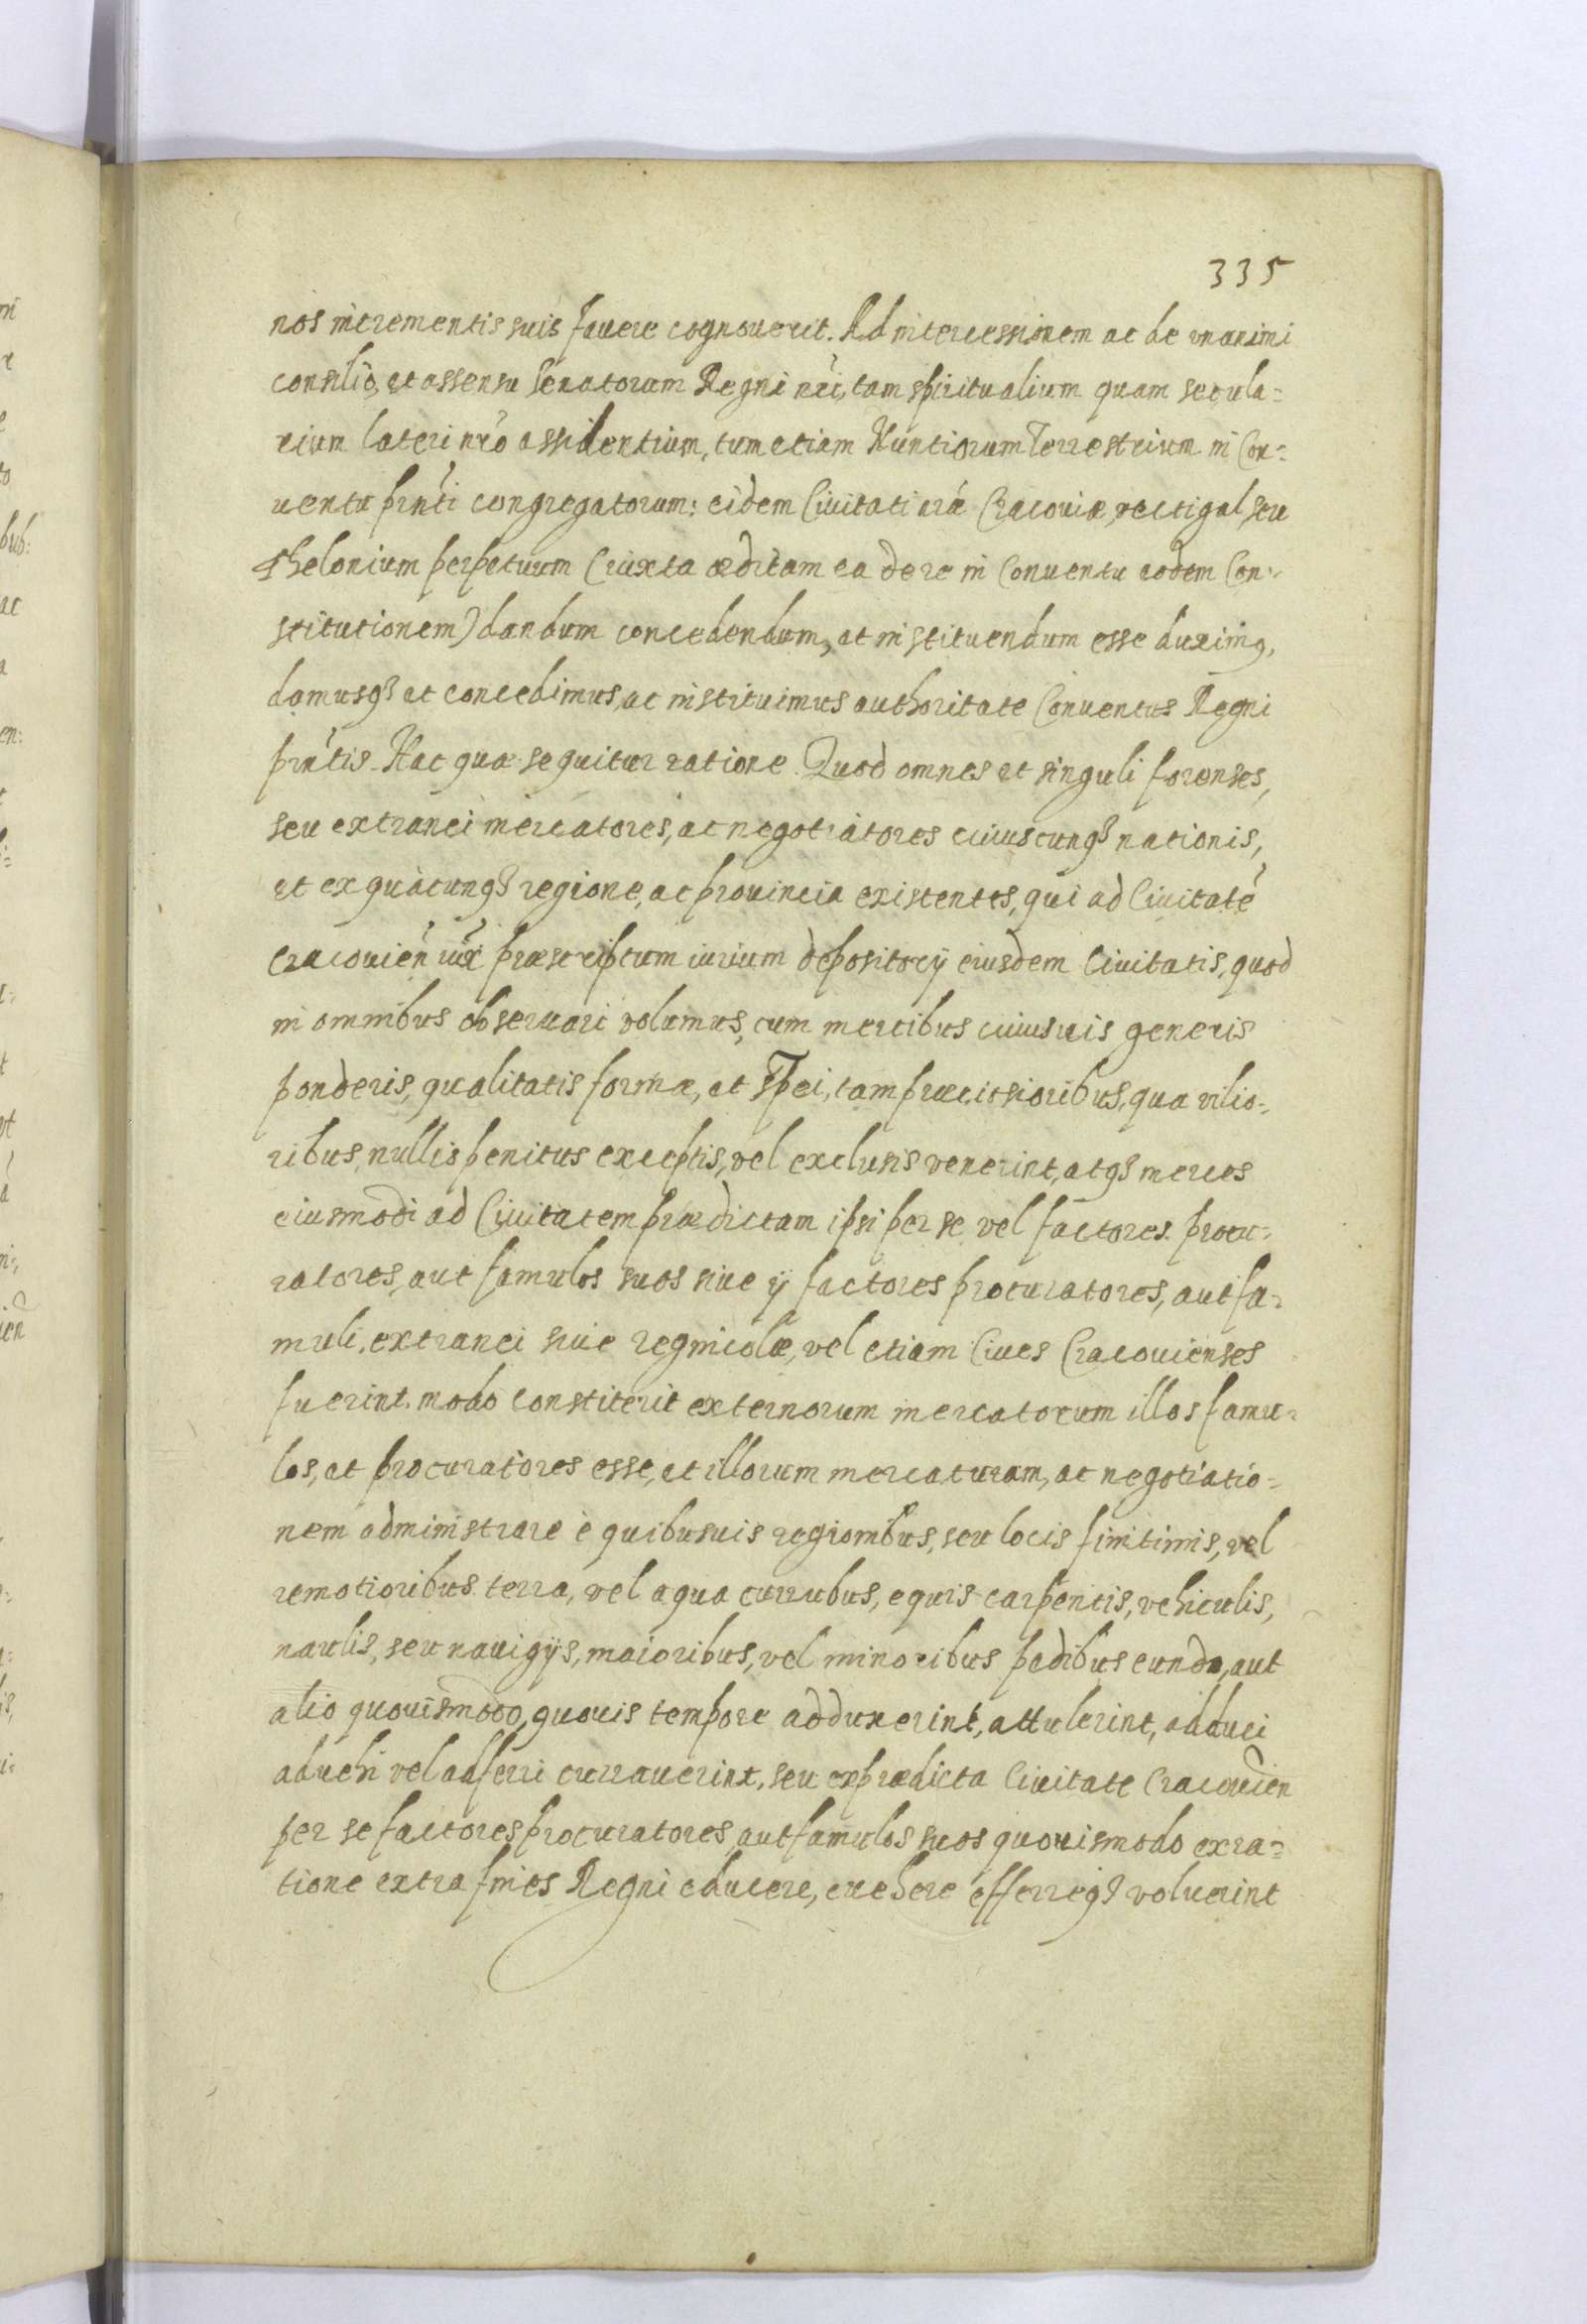 335
nos incrementis suis favere cognoverit. Ad intercessionem ac de unanimi
consilio, et assensu Senatorum Regni nr̃i, tam spiritualium quam secula=
rium lateri nr̃o assidentium, tum etiam Nuntiorum Terrestrium in Con=
uentu pr̃nti congregatorum: eidem Ciuitati nr̃a Cracouiæ, vectigal, seu
thelonium perpetuum (iuxta æditam ea de re in Conuentu eodem Con=
stitutionem) dandum concedendum, et instituendum esse duximꝰ,
damusqꝫ et concedimus, ac instituimus authoritate Conuentus Regni
pr̃ntis. Hac quæ sequitur ratione. Quod omnes et singuli forenses,
seu extranei mercatores, ac negotiatores cuiuscunqꝫ nationis,
et ex quacunqꝫ regione, ac prouincia existentes, qui ad Ciuitatẽ
Cracouien̄ iux̃ præscriptum iurium depositorij eiusdem Ciuitatis, quod
in omnibus obseruari volumus, cum mercibus cuiusuis generis
ponderis, qualitatis formæ, et spei, tam præciosioribus, qua vilio=
ribus, nullis penitus exceptis, vel exclusis venerint, atqꝫ merces
eiusmodi ad Ciuitatem prædictam ipsi per se vel factores. procu=
ratores, aut famulos suos siue ij factores procuratores, aut fa=
muli, extranei siue regnicolæ, vel etiam Ciues Cracouienses
fuerint. modo constiterit externorum mercatorum illos famu=
los, et procuratores esse, et illorum mercaturam, ac negotiatio=
nem administrare è quibusuis regionibus, seu locis finitimis, vel
remotioribus terra, vel aqua curribus, equis carpentis, vehiculis,
naulis, seu nauigijs, maioribus, vel minoribus pedibus eundo, aut
alio quouismodo, quouis tempore adduxerint, attulerint, adduci
aduehi vel adferri currauerint, seu ex prædicta Ciuitate Cracouien
per se factores procuratores aut famulos suos quouismodo exra=
tione extra fines Regni educere, euehere efferreqꝫ voluerint